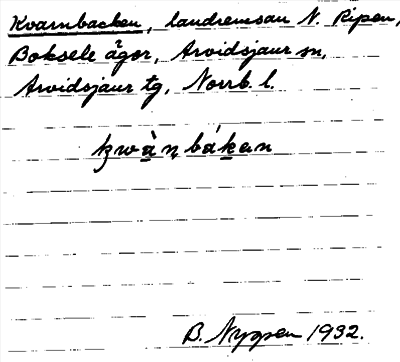 Kvarnbacken, landremsan N. Ripen,
Boksele ägor, Arvidsjaur sn,
Arvidsjaur tg, Norrb. l.
kwàn̥bákan
B. Nygren 1932.